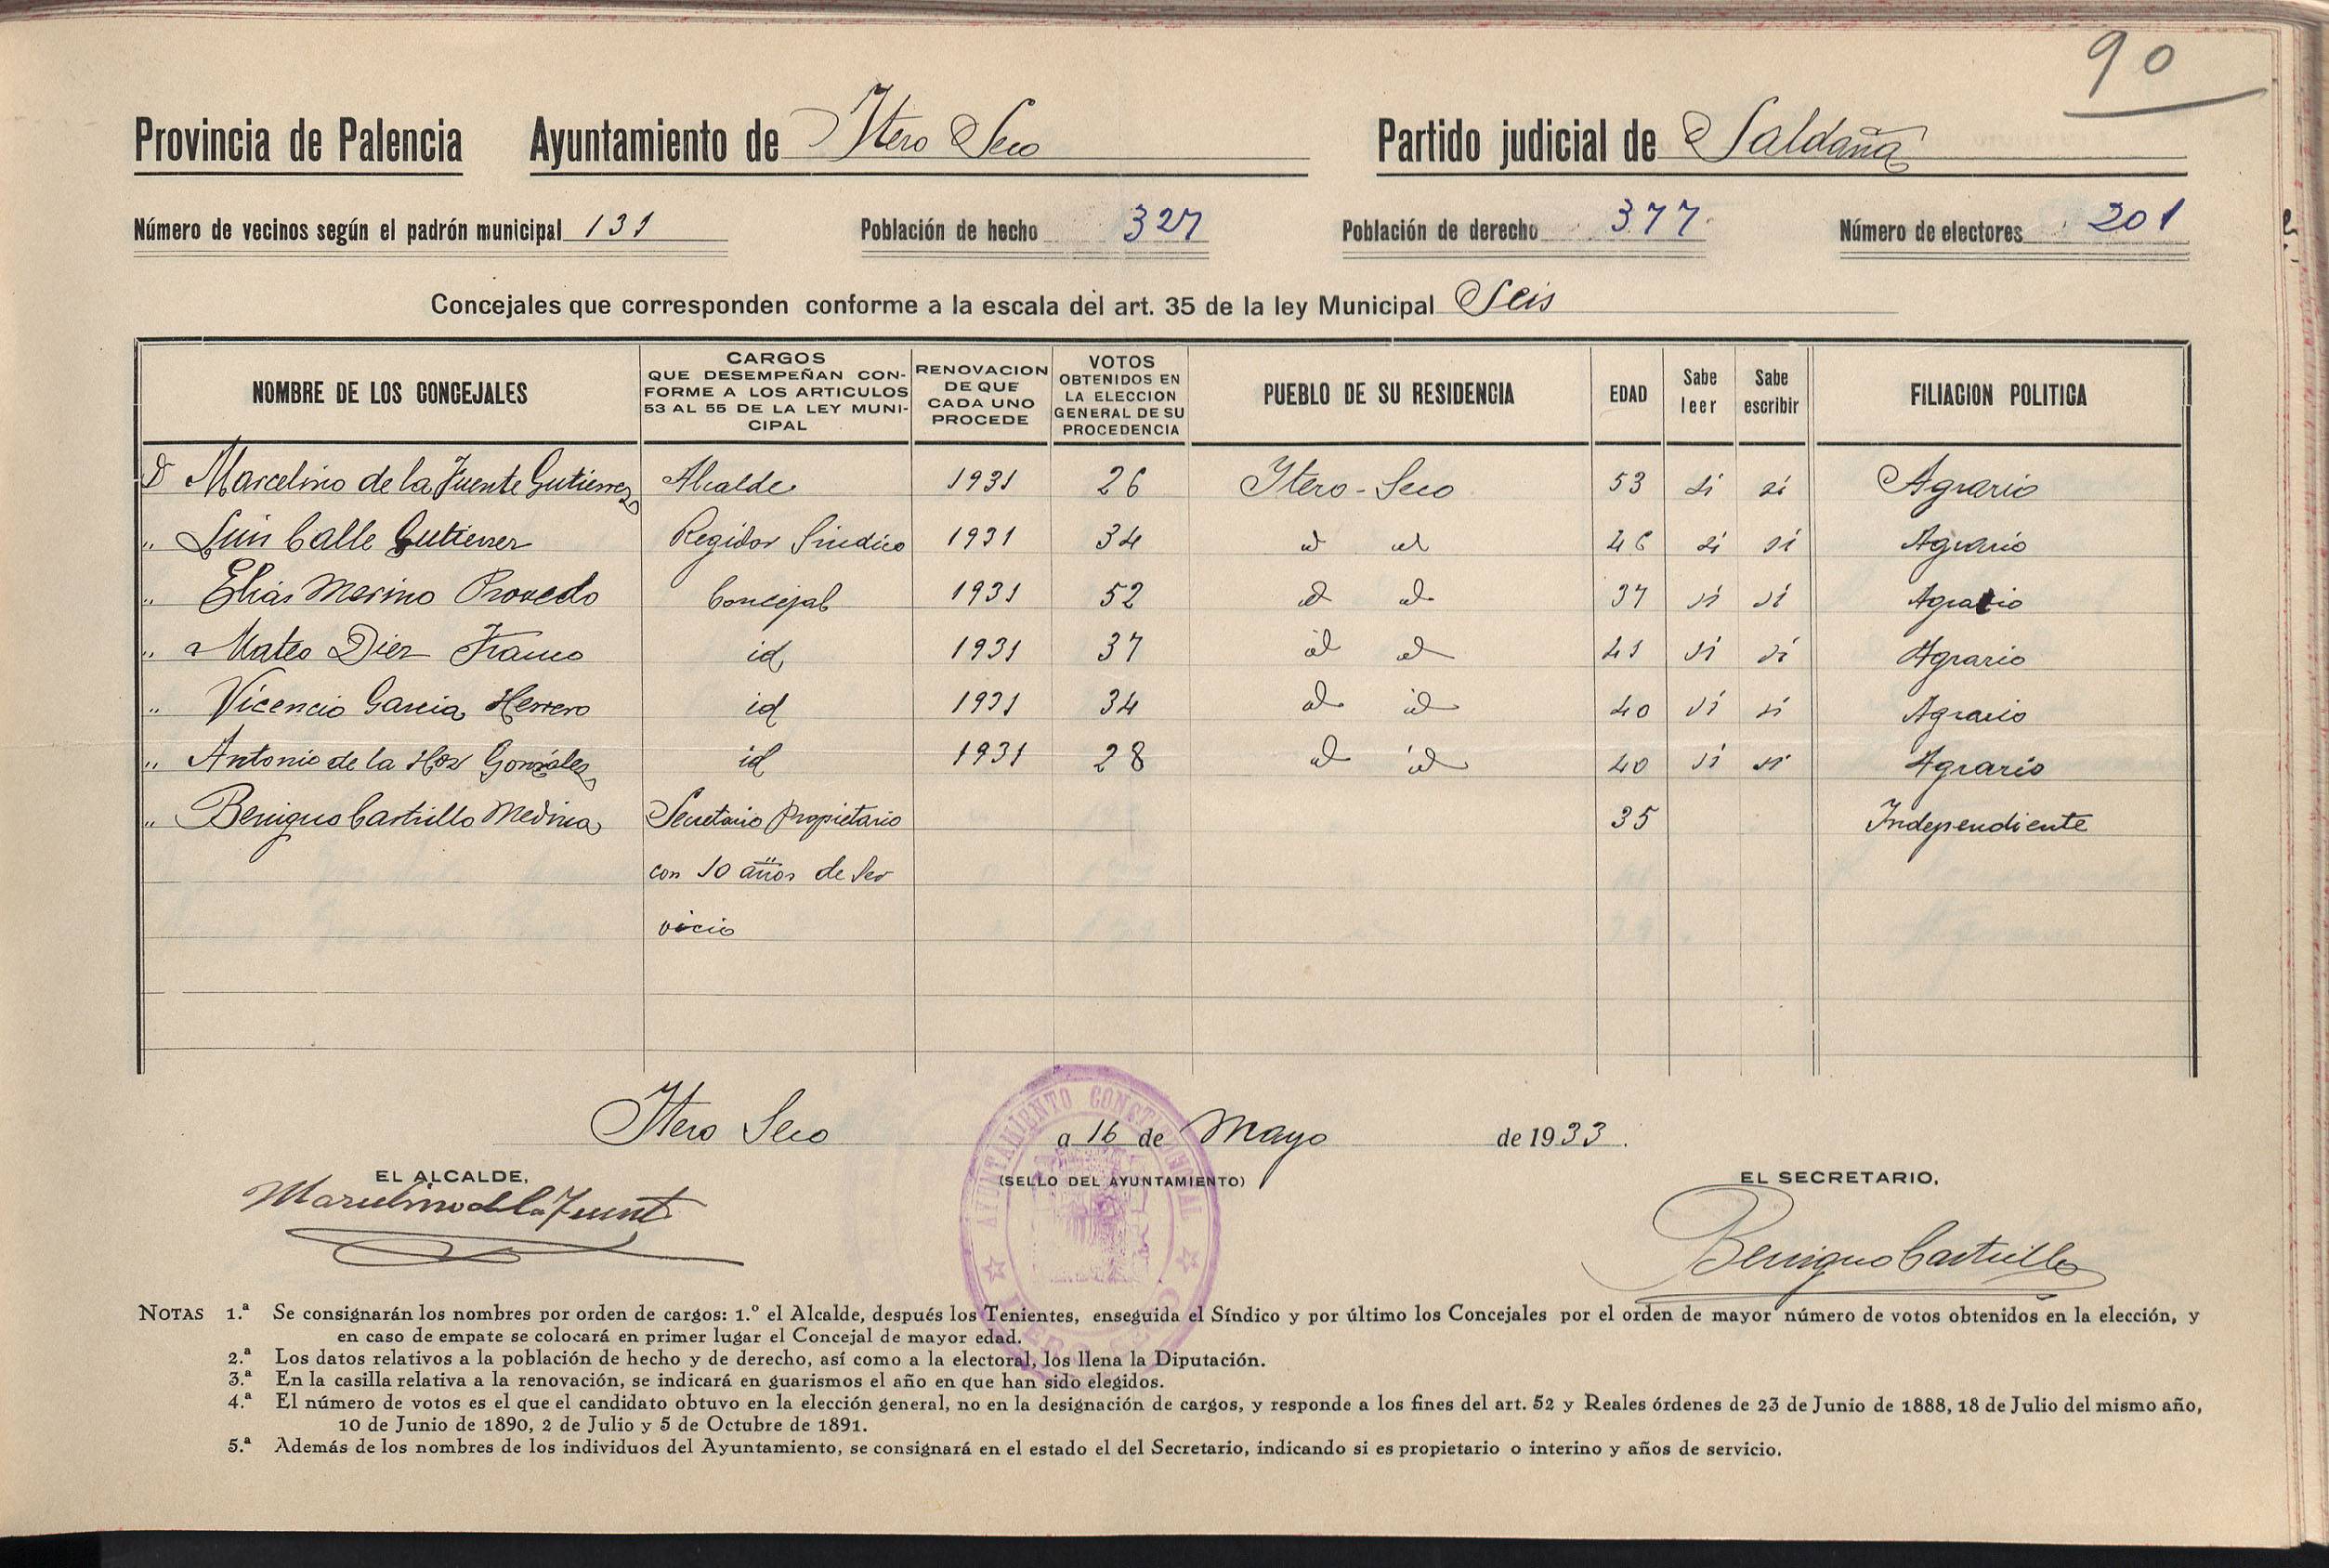 90
Provincia de Palencia Ayuntamiento de Itero Seco Partido judicial de Saldaña
Número de vecinos según el padrón municipal 131 Población de hecho 327 Población de derecho 377 Número de electores 201
Concejales que corresponden conforme a la escala del art. 35 de la ley Municipal Seis
NOMBRE DE LOS CONCEJALES
CARGOS
QUE DESEMPEÑAN CON-
FORME A LOS ARTICULOS
53 AL 55 DE LA LEY MUNI-
CIPAL
RENOVACION
DE QUE
CADA UNO
PROCEDE
VOTOS
OBTENIDOS EN
LA ELECCION
GENERAL DE SU
PROCEDENCIA
PUEBLO DE SU RESIDENCIA
EDAD
Sabe
leer
Sabe
escribir
FILIACION POLITICA
D Marcelino de la Fuente Gutierrez Alcalde 1931 26 Itero-Seco 53 si si Agrario
" Luis Calle Gutierrez Regidor Sindico 1931 34 id id 46 si si Agrario
" Elias Merino Provedo Concejal 1931 52 id id 37 si si Agrario
" Mateo Diez Franco id 1931 37 id id 41 si si Agrario
" Vicencio Garcia Herrero id 1931 34 id id 40 si si Agrario
" Antonio de la Hoz González id 1931 28 id id 40 si si Agrario
" Benigno Castrillo Medina Secretario Propietario 35 Independiente
con 10 años de Ser
vicio
Itero Seco a 16 de Mayo de 1933.
EL ALCALDE,
(SELLO DEL AYUNTAMIENTO)
EL SECRETARIO,
Marcelino de la Fuente
AYUNTAMIENTO CONSTITUCIONAL
Benigno Castrillo
NOTAS 1.ª Se consignarán los nombres por orden de cargos: 1.º el Alcalde, después los Tenientes, enseguida el Síndico y por último los Concejales por el orden de mayor número de votos obtenidos en la elección, y
en caso de empate se colocará en primer lugar el Concejal de mayor edad.
2.ª Los datos relativos a la población de hecho y de derecho, así como a la electoral, los llena la Diputación.
3.ª En la casilla relativa a la renovación, se indicará en guarismos el año en que han sido elegidos.
4.ª El número de votos es el que el candidato obtuvo en la elección general, no en la designación de cargos, y responde a los fines del art. 52 y Reales órdenes de 23 de Junio de 1888, 18 de Julio del mismo año,
10 de Junio de 1890, 2 de Julio y 5 de Octubre de 1891.
5.ª Además de los nombres de los individuos del Ayuntamiento, se consignará en el estado el del Secretario, indicando si es propietario o interino y años de servicio.